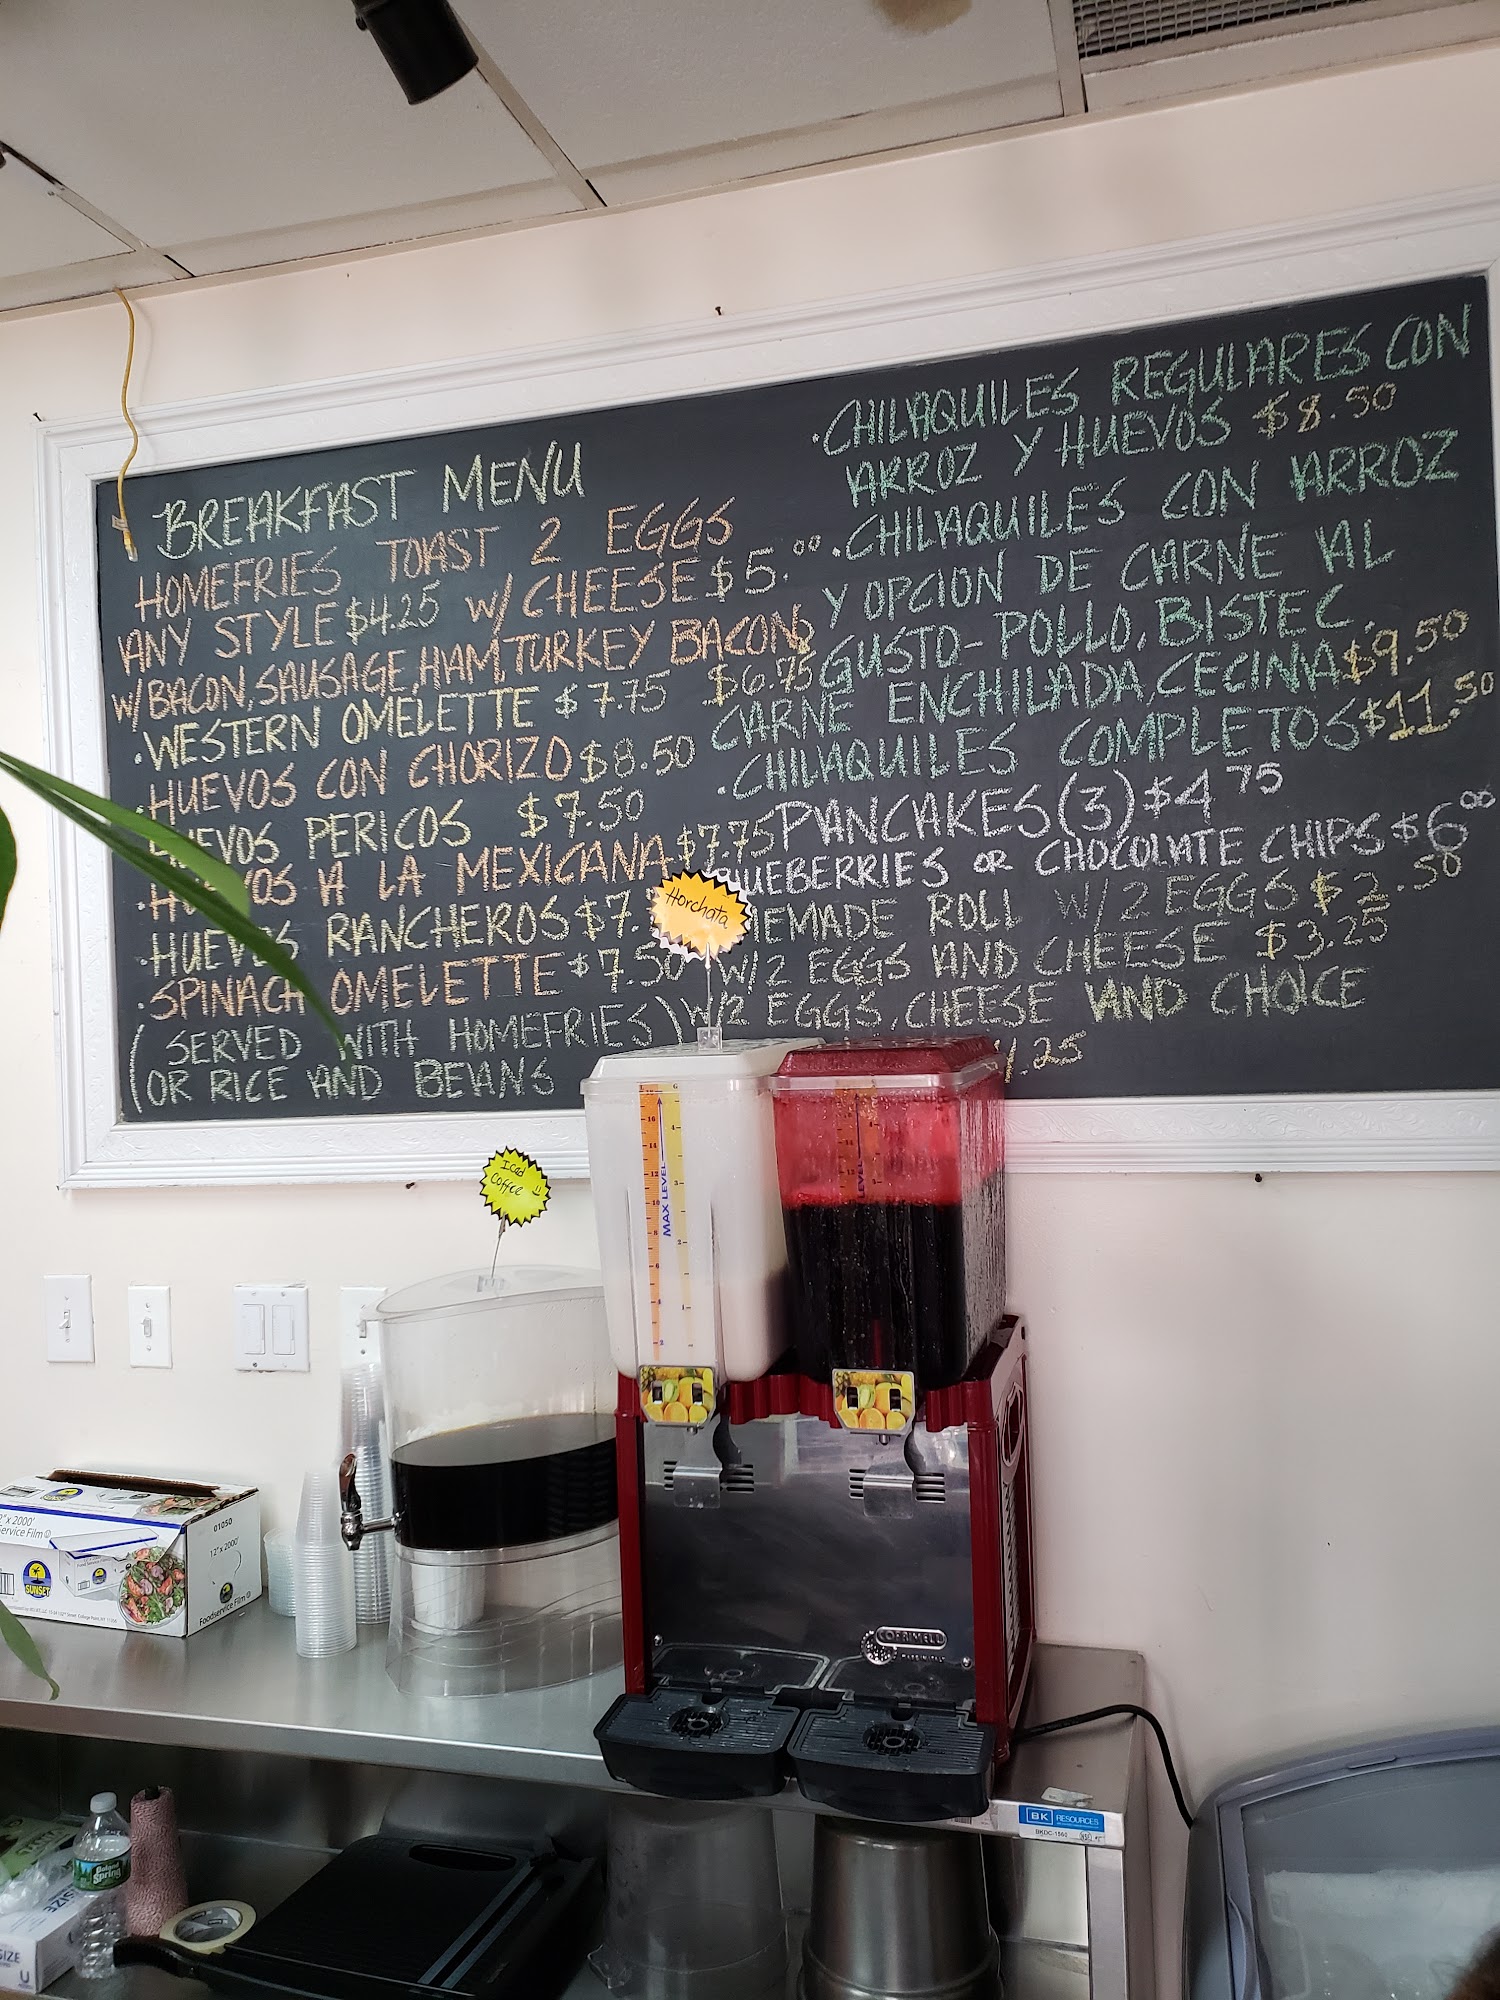 BREAKFAST MENU
HOMEFRIES TOAST 2 EGGS
ANY STYLE $4.25 W/ CHEESE $5.00
W/BACON, SAUSAGE, HAM, TURKEY BACON
$6.75
·WESTERN OMELETTE $7.75
·HUEVOS CON CHORIZO $8.50
HUEVOS PERICOS $7.50
·HUEVOS A LA MEXICANA $7.75
·HUEVOS RANCHEROS $7.
·SPINACH OMELETTE $7.50
(SERVED WITH HOMEFRIES)
(OR RICE AND BEANS
·CHILAQUILES REGULARES CON
ARROZ Y HUEVOS $8.50
·CHILAQUILES CON ARROZ
Y OPCION DE CARNE AL
GUSTO - POLLO, BISTEC,
CARNE ENCHILADA, CECINA $9.50
·CHILAQUILES COMPLETOS $11.50
PANCAKES (3) $4 75
BLUEBERRIES OR CHOCOLATE CHIPS $6 00
HOMEMADE ROLL W/ 2 EGGS $2.50
W/2 EGGS AND CHEESE $3.25
W/2 EGGS, CHEESE AND CHOICE
.25
Horchata
Iced
Coffee
MAX LEVEL
LEVEL
12" x 2000'
Service Film
SUNSET
01050
12" x 2000'
Foodservice Film
MADE IN ITALY
BK RESOURCES
Poland
Spring
SIZE
SIZE